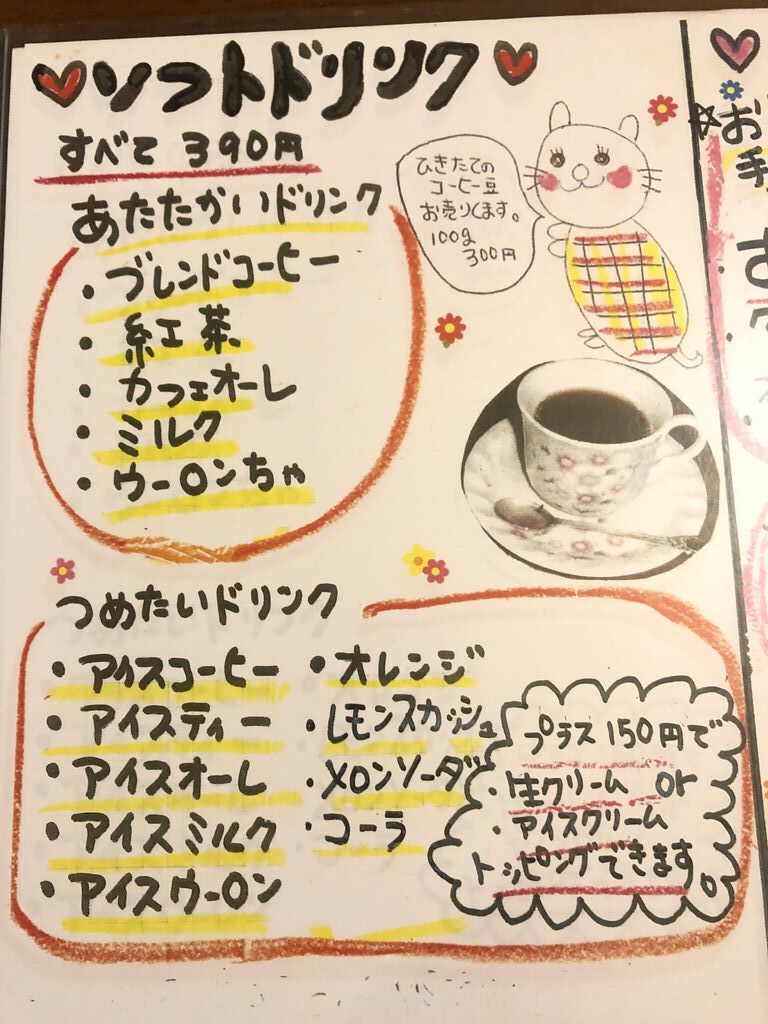 ソフトドリンク
すべて 390円
あたたかいドリンク
・ブレンドコーヒー
・紅茶
・カフェオーレ
・ミルク
・ウーロンちゃ
ひきたての
コーヒー豆
お売りします。
100g
300円
つめたいドリンク
・アイスコーヒー
・アイスティー
・アイスオーレ
・アイスミルク
・アイスウーロン
・オレンジ
・レモンスカッシュ
・メロンソーダ
・コーラ
プラス150円で
・生クリーム or
・アイスクリーム
トッピングできます。
お
手